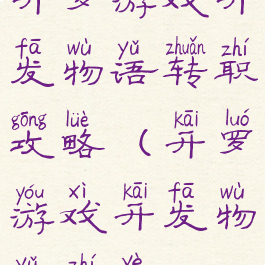 开罗游戏开
fā wù yǔ zhuǎn zhí
发物语转职
gōng lüè ( kāi luó
攻略（开罗
yóu xì kāi fā wù
游戏开发物
yǔ zhí yè